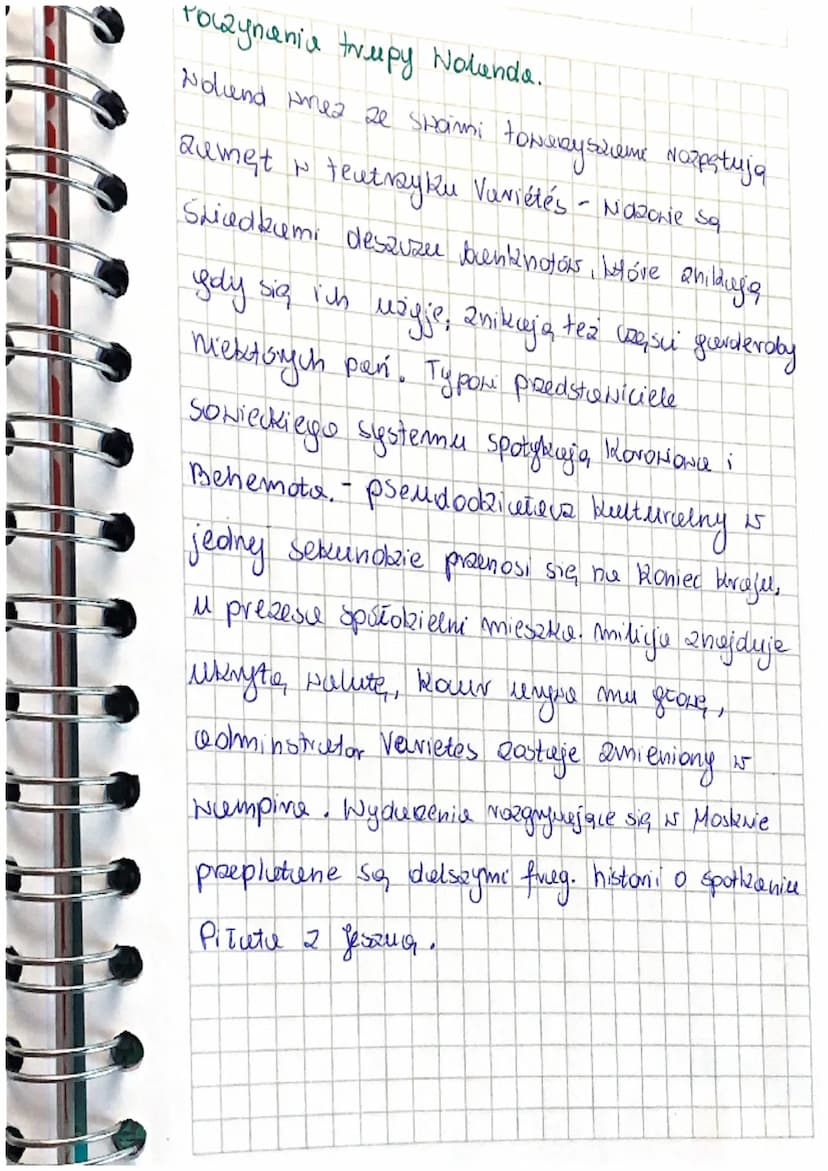 Poczynania trupy Wolanda.
Woland wraz ze swoimi towarzyszami rozpętują
zamęt w teatrzyku Variétés - widzowie są
świadkami deszczu banknotów, które znikają
gdy się ich użyje, znikają też części garderoby
niektórych pań. Typowi przedstawiciele
sowieckiego systemu spotykają Korowiowa i
Behemota. - pseudodziałacz kulturalny w
jednej sekundzie przenosi się na koniec kraju,
u prezesa spółdzielni mieszka. milicja znajduje
ukrytą walutę, kocur urywa mu głowę,
adminstrator Varietes zostaje zmieniony w
wampira. Wydarzenia rozgrywające się w Moskwie
przeplatane są dalszymi frag. historii o spotkaniu
Piłata z Jeszuą.